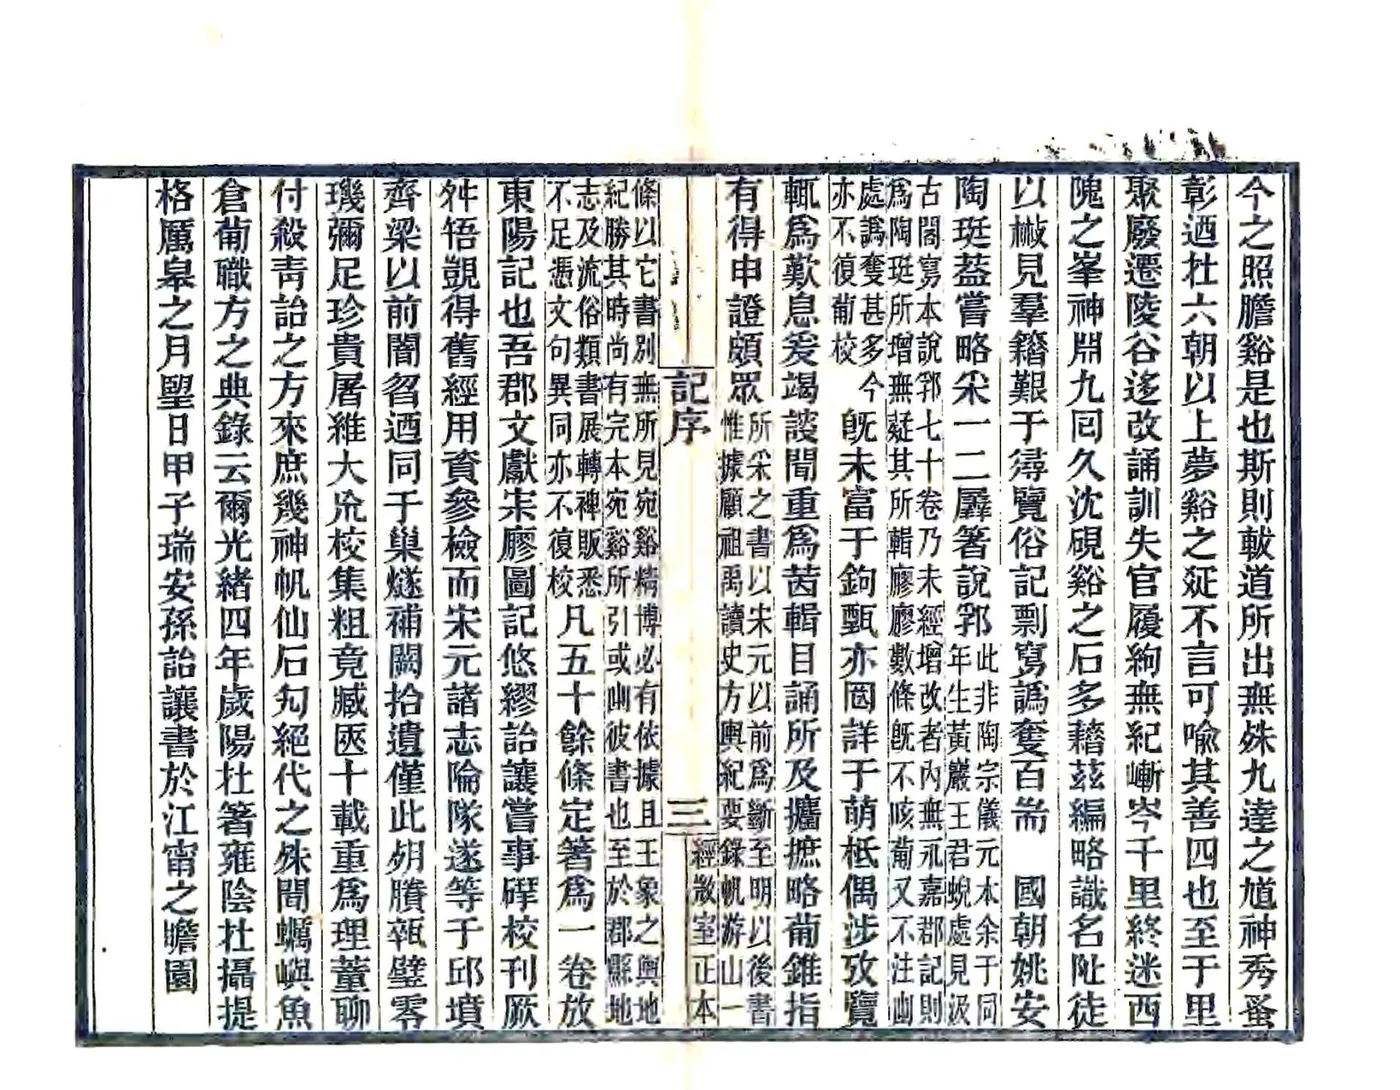 今之照膽谿是也斯則㦸道所出無殊九逵之馗神秀蚤
彰迺杜六朝以上夢谿之延不言可喩其善四也至于里
聚廢遷陵谷迻改誦訓失官履絢無紀嶃岑千里終迷西
隗之峯神淵九回久沈硯谿之石多藉茲編略識名阯徒
以檆見羣籍艱于㝷覽俗記剽寫譌奪百耑　國朝姚安
陶珽葢嘗略采一二羼箸說郛此非陶宗儀元本余于同
年生黃巖王君蜺處見汲
古閣寫本說郛七十卷乃未經增改者內無永嘉郡記則
爲陶珽所增無疑其所輯廖廖數條旣不咳葡又不注幽
處譌奪甚多今
亦不復葡校
旣未富于鉤甄亦固詳于萌柢偶涉攷覽
輒爲歎息爰竭談聞重爲茵輯目誦所及攟摭略葡錐指
有得申證頗眾所采之書以宋元以前爲斷至明以後書
惟據顧祖禹讀史方輿紀要錄帆游山一
記序
三
經㪚室正本
條以它書別無所見宛谿精博必有依據且王象之輿地
紀勝其時尚有完本宛谿所引或幽彼書也至於郡縣地
志及流俗類書展轉裨販悉
不足憑文句異同亦不復校
凡五十餘條定箸爲一卷放
東陽記也吾郡文獻宋廖圖記悠繆詒讓嘗事硏校刊厥
舛牾覬得舊經用資參檢而宋元諸志隃隊遂等于邱墳
齊梁以前闇曶迺同于巢燧補闕拾遺僅此殘賸瓻璧零
璣彌足珍貴屠維大㐬校集粗竟臧匧十載重爲理董聊
付殺靑詒之方來庶幾神帆仙石勼絕代之殊聞蠣嶼魚
倉葡職方之典錄云爾光緒四年歲陽杜箸雍陰杜攝提
格厲皋之月朢日甲子瑞安孫詒讓書於江甯之瞻園